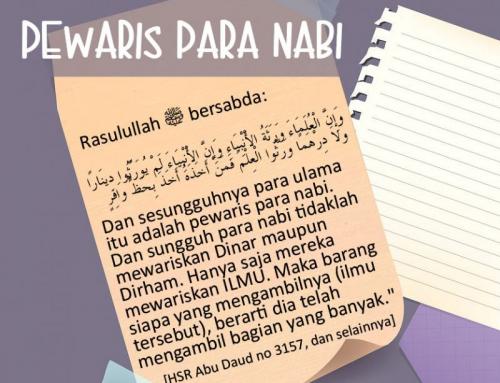 PEWARIS PARA NABI
Rasulullah ﷺ bersabda:
وَإِنَّ الْعُلَمَاءَ وَرَثَةُ الْأَنْبِيَاءِ وَإِنَّ الْأَنْبِيَاءَ لَمْ يُوَرِّثُوا دِينَارًا
وَلَا دِرْهَمًا وَرَّثُوا الْعِلْمَ فَمَنْ أَخَذَهُ أَخَذَ بِحَظٍّ وَافِرٍ
Dan sesungguhnya para ulama
itu adalah pewaris para nabi.
Dan sungguh para nabi tidaklah
mewariskan Dinar maupun
Dirham. Hanya saja mereka
mewariskan ILMU. Maka barang
siapa yang mengambilnya (ilmu
tersebut), berarti dia telah
mengambil bagian yang banyak."
[HSR Abu Daud no 3157, dan selainnya]